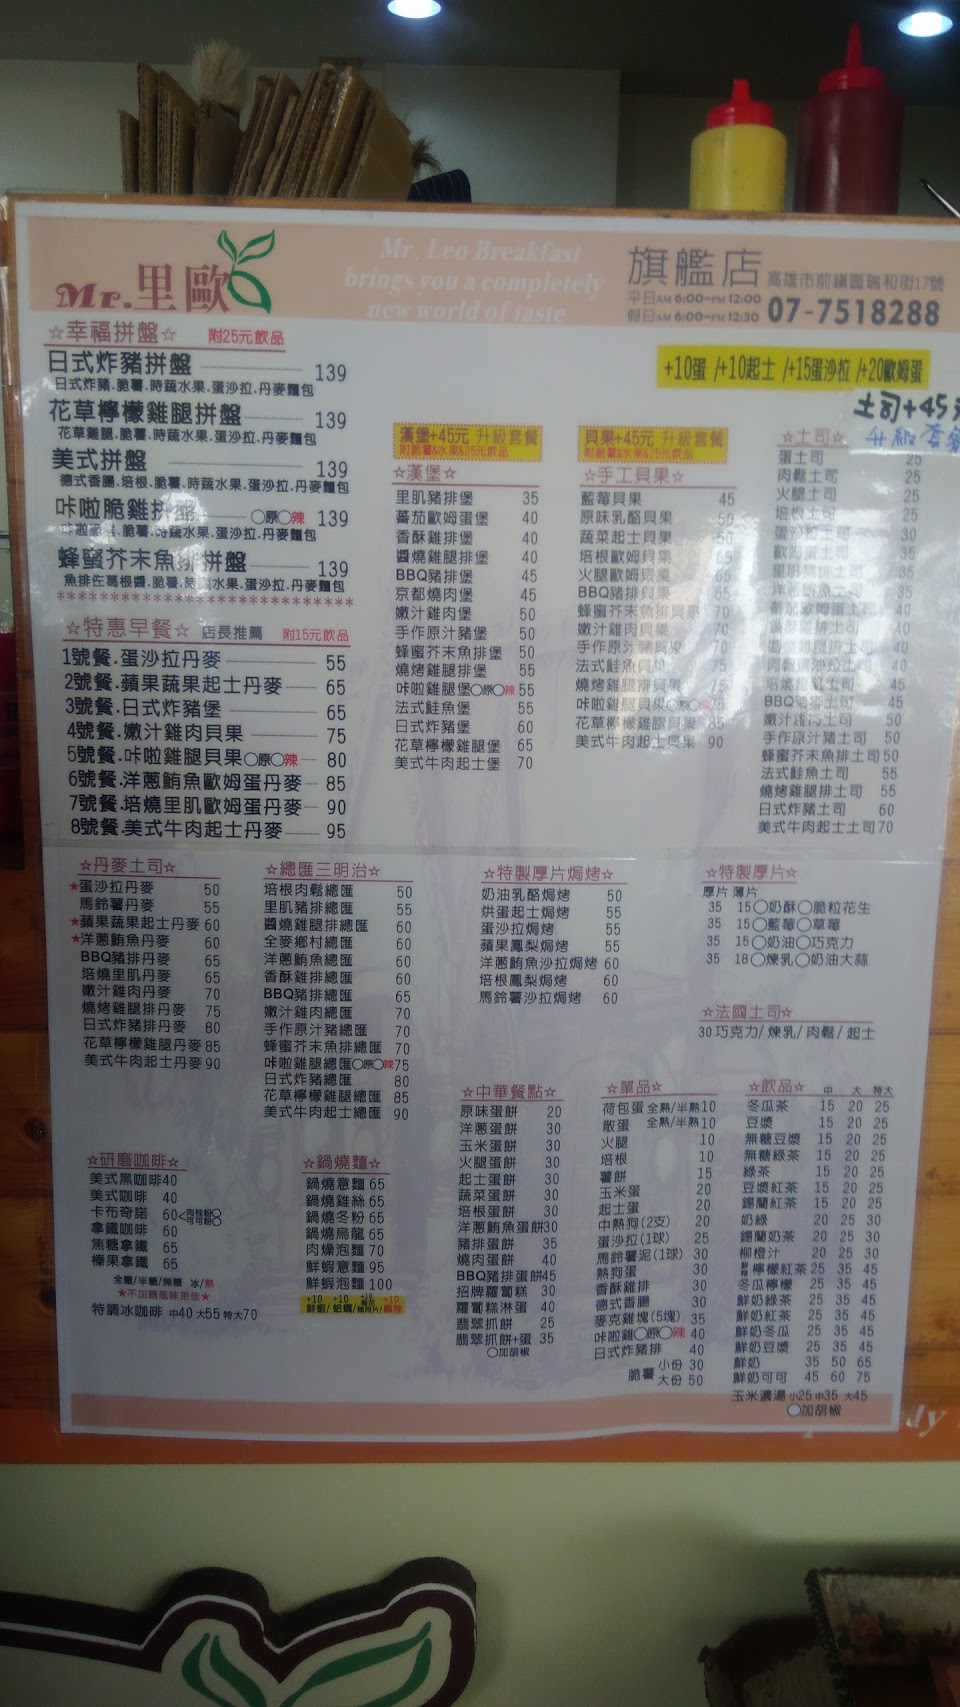 Mr.里歐
Mr. Leo Breakfast
brings you a completely
new world of taste
旗艦店
高雄市前鎮區瑞和街17號
平日AM 6:00~PM 12:00
假日AM 6:00~PM 12:30
07-7518288
+10蛋 /+10起士 /+15蛋沙拉 /+20歐姆蛋
土司+45元
升級套餐
☆幸福拼盤☆ 附25元飲品
日式炸豬拼盤 139
日式炸豬.脆薯.時蔬水果.蛋沙拉.丹麥麵包
花草檸檬雞腿拼盤 139
花草雞腿.脆薯.時蔬水果.蛋沙拉.丹麥麵包
美式拼盤 139
德式香腸.培根.脆薯.時蔬水果.蛋沙拉.丹麥麵包
咔啦脆雞拼盤 ○原○辣 139
脆薯.時蔬水果.蛋沙拉.丹麥麵包
蜂蜜芥末魚排拼盤 139
魚排佐葛根醬.脆薯.時蔬水果.蛋沙拉.丹麥麵包
☆特惠早餐☆ 店長推薦 附15元飲品
1號餐.蛋沙拉丹麥 55
2號餐.蘋果蔬果起士丹麥 65
3號餐.日式炸豬堡 65
4號餐.嫩汁雞肉貝果 75
5號餐.咔啦雞腿貝果○原○辣 80
6號餐.洋蔥鮪魚歐姆蛋丹麥 85
7號餐.培燒里肌歐姆蛋丹麥 90
8號餐.美式牛肉起士丹麥 95
漢堡+45元 升級套餐
附脆薯&水果&25元飲品
☆漢堡☆
里肌豬排堡 35
蕃茄歐姆蛋堡 40
香酥雞排堡 40
醬燒雞腿排堡 40
BBQ豬排堡 45
京都燒肉堡 45
嫩汁雞肉堡 50
手作原汁豬堡 50
蜂蜜芥末魚排堡 50
燒烤雞腿排堡 55
咔啦雞腿堡○原○辣 55
法式鮭魚堡 55
日式炸豬堡 60
花草檸檬雞腿堡 65
美式牛肉起士堡 70
貝果+45元 升級套餐
附脆薯&水果&25元飲品
☆手工貝果☆
藍莓貝果 45
原味乳酪貝果 50
蔬菜起士貝果 50
培根歐姆貝果 65
火腿歐姆貝果 65
BBQ豬排貝果 65
蜂蜜芥末魚排貝果 70
嫩汁雞肉貝果 70
手作原汁豬貝果 70
法式鮭魚貝果 75
燒烤雞腿排貝果 75
咔啦雞腿貝果○原○辣 75
花草檸檬雞腿貝果 85
美式牛肉起士貝果 90
☆土司☆
蛋土司 25
肉鬆土司 25
火腿土司 25
培根土司 25
蛋沙拉土司 30
歐姆蛋土司 35
里肌豬排土司 35
洋蔥鮪魚土司 35
蕃茄歐姆蛋土司 40
香酥雞排土司 40
醬燒雞腿排土司 40
肉鬆蛋沙拉土司 40
BBQ豬排土司 45
嫩汁雞肉土司 50
手作原汁豬土司 50
蜂蜜芥末魚排土司 50
法式鮭魚土司 55
燒烤雞腿排土司 55
日式炸豬土司 60
美式牛肉起士土司 70
☆丹麥土司☆
★蛋沙拉丹麥 50
馬鈴薯丹麥 55
★蘋果蔬果起士丹麥 60
★洋蔥鮪魚丹麥 60
BBQ豬排丹麥 65
培燒里肌丹麥 65
嫩汁雞肉丹麥 70
燒烤雞腿排丹麥 75
日式炸豬排丹麥 80
花草檸檬雞腿丹麥 85
美式牛肉起士丹麥 90
☆總匯三明治☆
培根肉鬆總匯 50
里肌豬排總匯 55
醬燒雞腿排總匯 60
全麥鄉村總匯 60
洋蔥鮪魚總匯 60
香酥雞排總匯 60
BBQ豬排總匯 65
嫩汁雞肉總匯 70
手作原汁豬總匯 70
蜂蜜芥末魚排總匯 70
咔啦雞腿總匯○原○辣 75
日式炸豬總匯 80
花草檸檬雞腿總匯 85
美式牛肉起士總匯 90
☆特製厚片焗烤☆
奶油乳酪焗烤 50
烘蛋起士焗烤 55
蛋沙拉焗烤 55
蘋果鳳梨焗烤 55
洋蔥鮪魚沙拉焗烤 60
培根鳳梨焗烤 60
馬鈴薯沙拉焗烤 60
☆特製厚片☆
厚片 薄片
35 15○奶酥○脆粒花生
35 15○藍莓○草莓
35 15○奶油○巧克力
35 18○煉乳○奶油大蒜
☆法國土司☆
30 巧克力/煉乳/肉鬆/起士
☆研磨咖啡☆
美式黑咖啡 40
美式咖啡 40
卡布奇諾 60<肉桂粉○ 可可粉○
拿鐵咖啡 60
焦糖拿鐵 65
榛果拿鐵 65
全糖/半糖/無糖 冰/熱
★不加糖風味更佳★
特調冰咖啡 中40 大55 特大70
☆鍋燒麵☆
鍋燒意麵 65
鍋燒雞絲 65
鍋燒冬粉 65
鍋燒烏龍 65
肉燥泡麵 70
鮮蝦意麵 95
鮮蝦泡麵 100
+10 +10 +10 +10
鮮蝦/蛤蠣/ /麻辣
☆中華餐點☆
原味蛋餅 20
洋蔥蛋餅 30
玉米蛋餅 30
火腿蛋餅 30
起士蛋餅 30
蔬菜蛋餅 30
培根蛋餅 30
洋蔥鮪魚蛋餅 30
豬排蛋餅 35
燒肉蛋餅 40
BBQ豬排蛋餅 45
招牌蘿蔔糕 30
蘿蔔糕淋蛋 40
翡翠抓餅 25
翡翠抓餅+蛋 35
○加胡椒
☆單品☆
荷包蛋 全熟/半熟 10
散蛋 全熟/半熟 10
火腿 10
培根 10
薯餅 15
玉米蛋 20
起士蛋 20
中熱狗(2支) 20
蛋沙拉(1球) 25
馬鈴薯泥(1球) 30
熱狗蛋 30
香酥雞排 30
德式香腸 30
麥克雞塊(5塊) 35
咔啦雞○原○辣 40
日式炸豬排 40
脆薯 小份 30
大份 50
☆飲品☆ 中 大 特大
冬瓜茶 15 20 25
豆漿 15 20 25
無糖豆漿 15 20 25
無糖綠茶 15 20 25
綠茶 15 20 25
豆漿紅茶 15 20 25
錫蘭紅茶 15 20 25
奶綠 20 25 30
錫蘭奶茶 20 25 30
柳橙汁 20 25 30
檸檬紅茶 25 35 45
冬瓜檸檬 25 35 45
鮮奶綠茶 25 35 45
鮮奶紅茶 25 35 45
鮮奶冬瓜 25 35 45
鮮奶豆漿 25 35 45
鮮奶 35 50 65
鮮奶可可 45 60 75
玉米濃湯 小25 中35 大45
○加胡椒